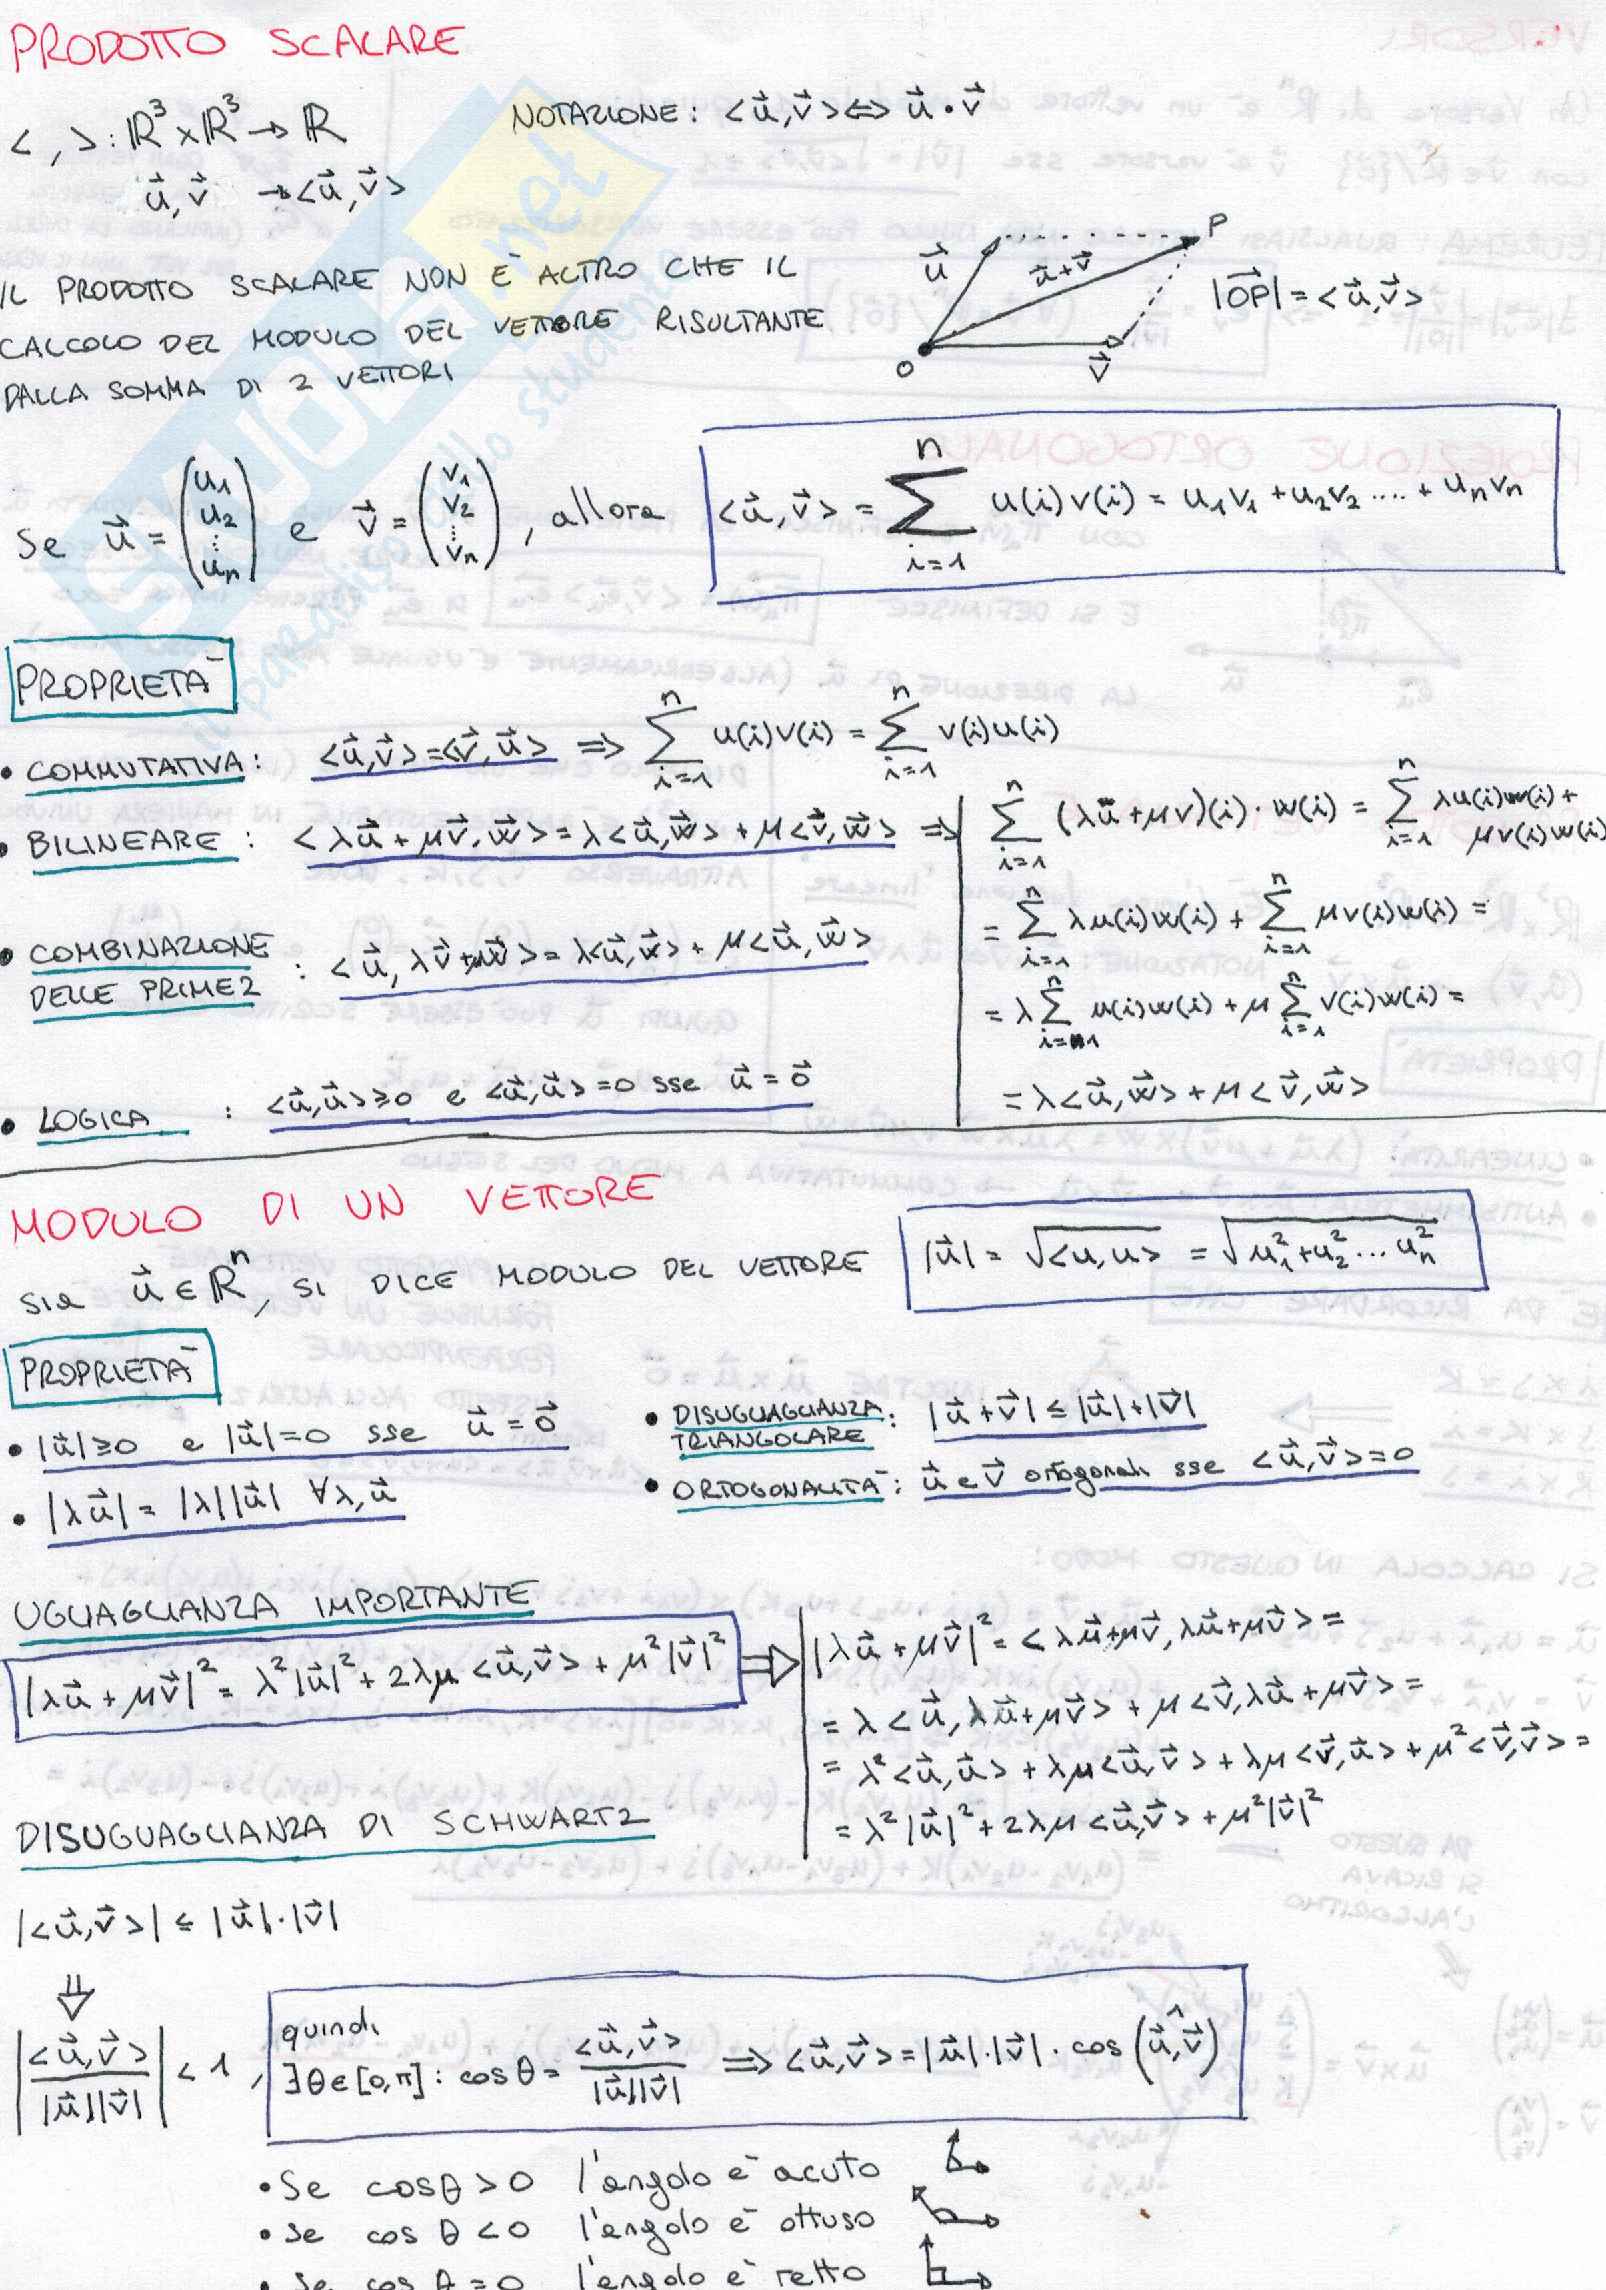 PRODOTTO SCALARE
< , > : ℝ³ × ℝ³ → ℝ
u⃗, v⃗ → <u⃗, v⃗>
NOTAZIONE: <u⃗, v⃗> ⇔ u⃗ • v⃗
IL PRODOTTO SCALARE NON È ALTRO CHE IL
CALCOLO DEL MODULO DEL VETTORE RISULTANTE
DALLA SOMMA DI 2 VETTORI
u⃗ u⃗+v⃗ P
O v⃗
|OP⃗| = <u⃗, v⃗>
Se u⃗ = (u₁ u₂ ⋮ uₙ) e v⃗ = (v₁ v₂ ⋮ vₙ), allora <u⃗, v⃗> = ∑ⁿᵢ₌₁ u(i)v(i) = u₁v₁ + u₂v₂ .... + uₙvₙ
PROPRIETÀ
• COMMUTATIVA: <u⃗, v⃗> = <v⃗, u⃗> ⇒ ∑ⁿᵢ₌₁ u(i)v(i) = ∑ⁿᵢ₌₁ v(i)u(i)
• BILINEARE: <λu⃗ + μv⃗, w⃗> = λ<u⃗, w⃗> + μ<v⃗, w⃗> ⇒ ∑ⁿᵢ₌₁ (λu⃗ + μv)(i) · w(i) = ∑ⁿᵢ₌₁ λu(i)w(i) + μv(i)w(i)
= ∑ⁿᵢ₌₁ λu(i)w(i) + ∑ⁿᵢ₌₁ μv(i)w(i) =
= λ ∑ⁿᵢ₌₁ u(i)w(i) + μ ∑ⁿᵢ₌₁ v(i)w(i) =
= λ<u⃗, w⃗> + μ<v⃗, w⃗>
• COMBINAZIONE
DELLE PRIME 2 : <u⃗, λv⃗ + μw⃗> = λ<u⃗, w⃗> + μ<u⃗, w⃗>
• LOGICA : <u⃗, u⃗> ≥ 0 e <u⃗, u⃗> = 0 sse u⃗ = 0⃗
MODULO DI UN VETTORE
Sia u⃗ ∈ ℝⁿ, SI DICE MODULO DEL VETTORE |u⃗| = √<u, u> = √(u₁² + u₂² ... uₙ²)
PROPRIETÀ
• |u⃗| ≥ 0 e |u⃗| = 0 sse u⃗ = 0⃗
• |λu⃗| = |λ||u⃗| ∀λ, u⃗
• DISUGUAGLIANZA
TRIANGOLARE : |u⃗ + v⃗| ≤ |u⃗| + |v⃗|
• ORTOGONALITÀ : u⃗ e v⃗ ortogonali sse <u⃗, v⃗> = 0
UGUAGLIANZA IMPORTANTE
|λu⃗ + μv⃗|² = λ²|u⃗|² + 2λμ <u⃗, v⃗> + μ²|v⃗|² ⇒ |λu⃗ + μv⃗|² = <λu⃗ + μv⃗, λu⃗ + μv⃗> =
= λ<u⃗, λu⃗ + μv⃗> + μ<v⃗, λu⃗ + μv⃗> =
= λ²<u⃗, u⃗> + λμ<u⃗, v⃗> + λμ<v⃗, u⃗> + μ²<v⃗, v⃗> =
= λ²|u⃗|² + 2λμ<u⃗, v⃗> + μ²|v⃗|²
DISUGUAGLIANZA DI SCHWARTZ
|<u⃗, v⃗>| ≤ |u⃗| · |v⃗|
⇓
|<u⃗, v⃗> / |u⃗||v⃗|| < 1,
quindi
∃θ ∈ [0, π] : cos θ = <u⃗, v⃗> / |u⃗||v⃗| ⇒ <u⃗, v⃗> = |u⃗| · |v⃗| · cos (u⃗,^v⃗)
• Se cos θ > 0 l'angolo è acuto
• Se cos θ < 0 l'angolo è ottuso
• Se cos θ = 0 l'angolo è retto